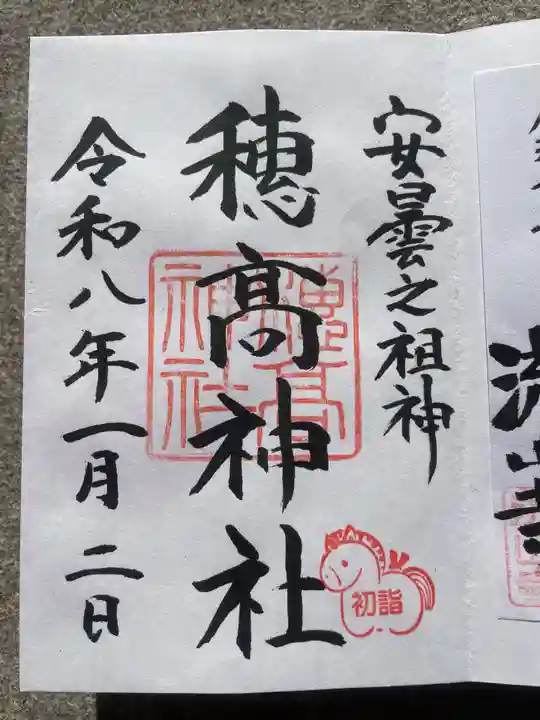 安曇之祖神
穂髙神社
穂高神社
初詣
令和八年一月二日